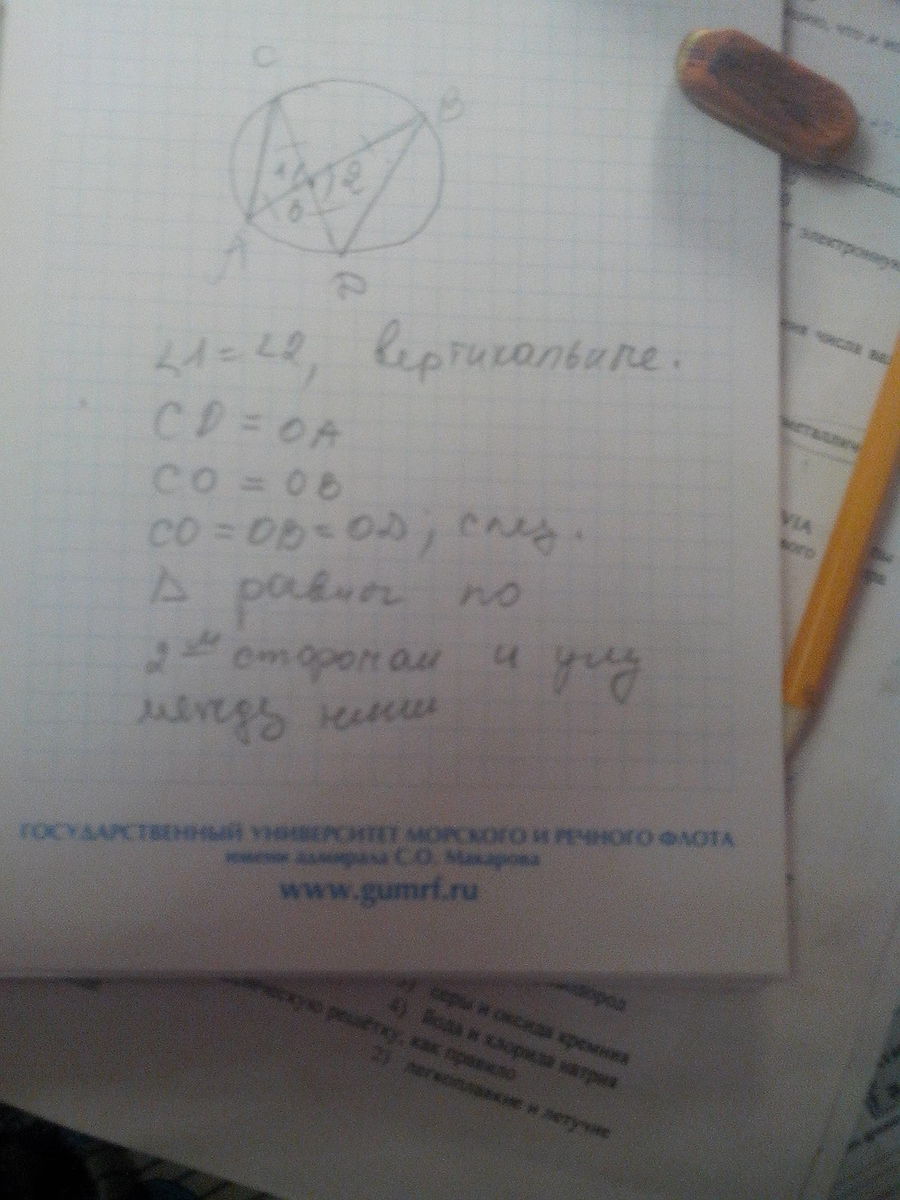 C
B
1
2
O
A
D
∠1 = ∠2, вертикальные.
CD = OA
CO = OB
CO = OB = OD, след.
Δ равны по
2-м сторонам и углу
между ними
ГОСУДАРСТВЕННЫЙ УНИВЕРСИТЕТ МОРСКОГО И РЕЧНОГО ФЛОТА
имени адмирала С.О. Макарова
www.gumrf.ru
что и
электронную
числа
VIA
водород
серы и оксида кремния
4) Вода и хлорида натрия
решётку, как правило
2) легкоплавкие и летучие